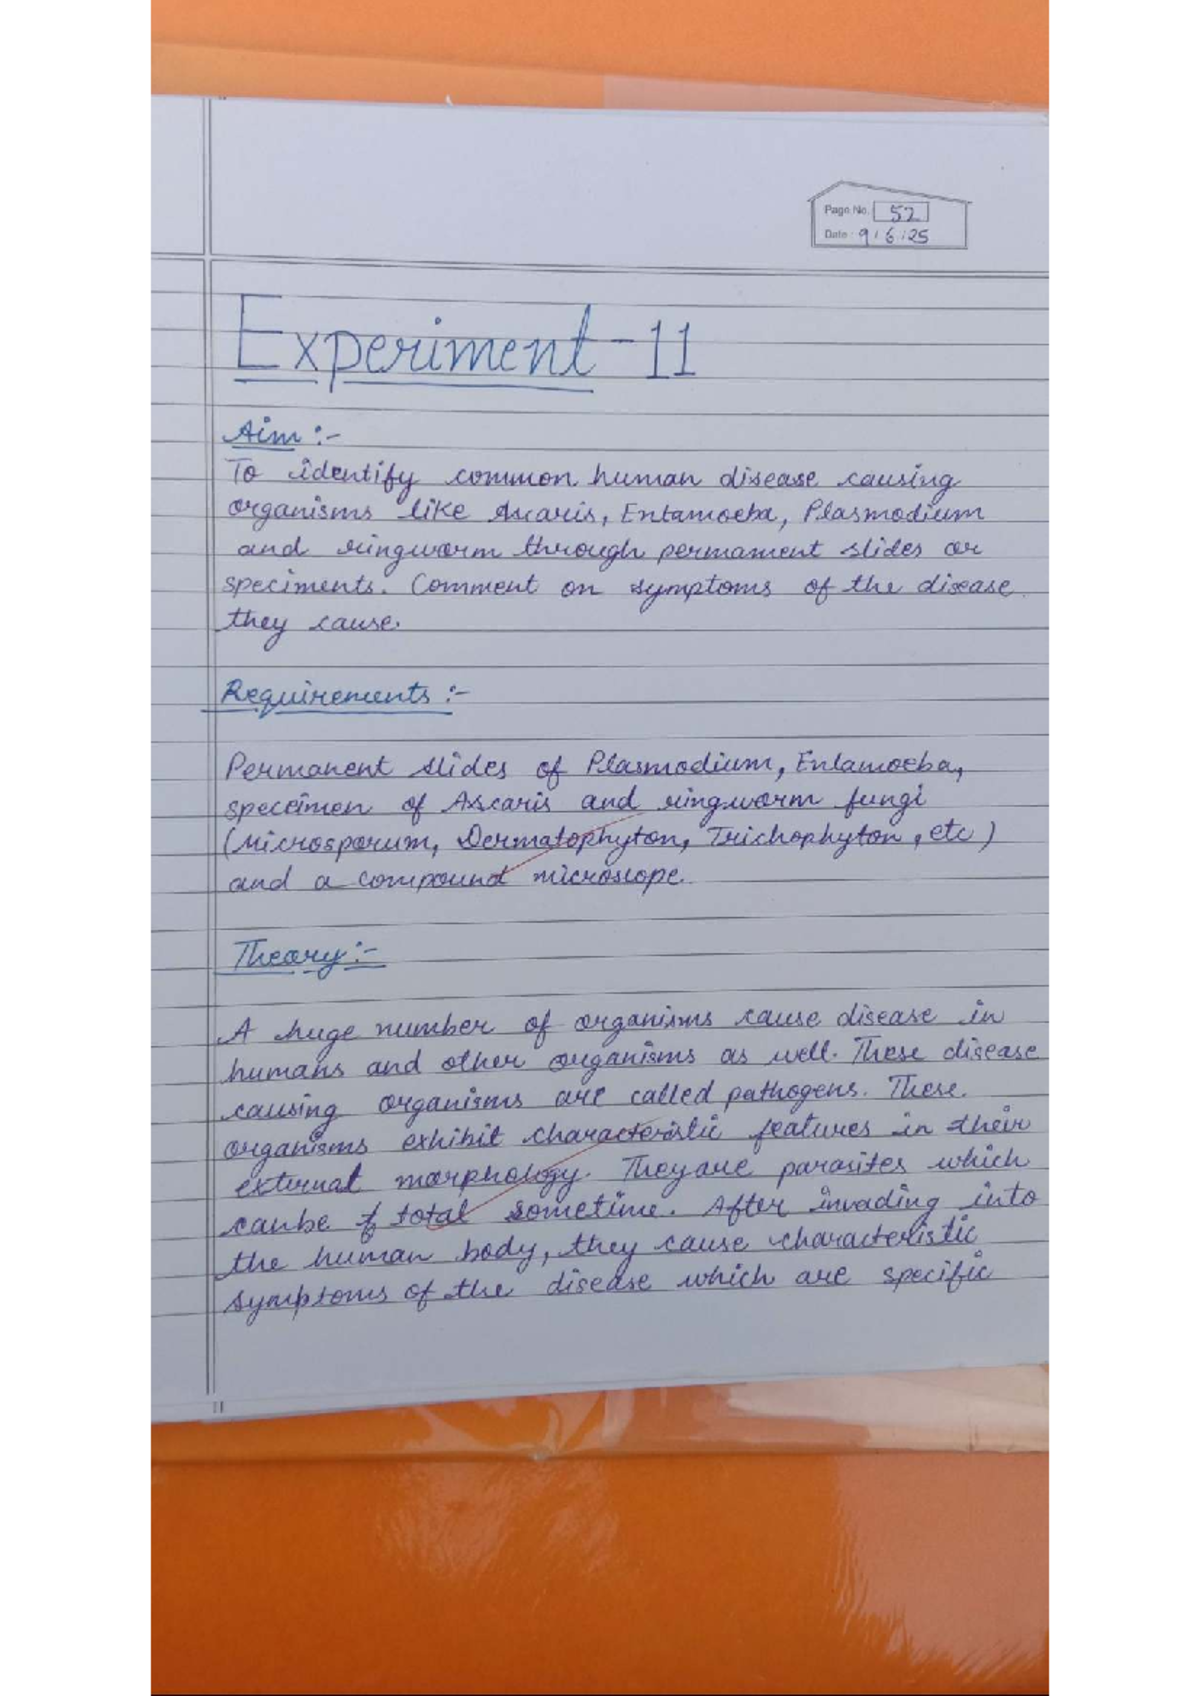 Page No. 52
Date: 9/6/25
Experiment-11
Aim:-
To identify common human disease causing
organisms like Ascaris, Entamoeba, Plasmodium
and ringworm through permament slides or
speciments. Comment on symptoms of the disease
they cause.
Requirements:-
Permanent slides of Plasmodium, Entamoeba,
specimen of Ascaris and ringworm fungi
(Microsporum, Dermatophyton, Trichophyton, etc)
and a compound microscope.
Theory:-
A huge number of organisms cause disease in
humans and other organisms as well. These disease
causing organisms are called pathogens. These
organisms exhibit characteristic features in their
external morphology. They are parasites which
can be total sometime. After invading into
the human body, they cause characteristic
symptoms of the disease which are specific